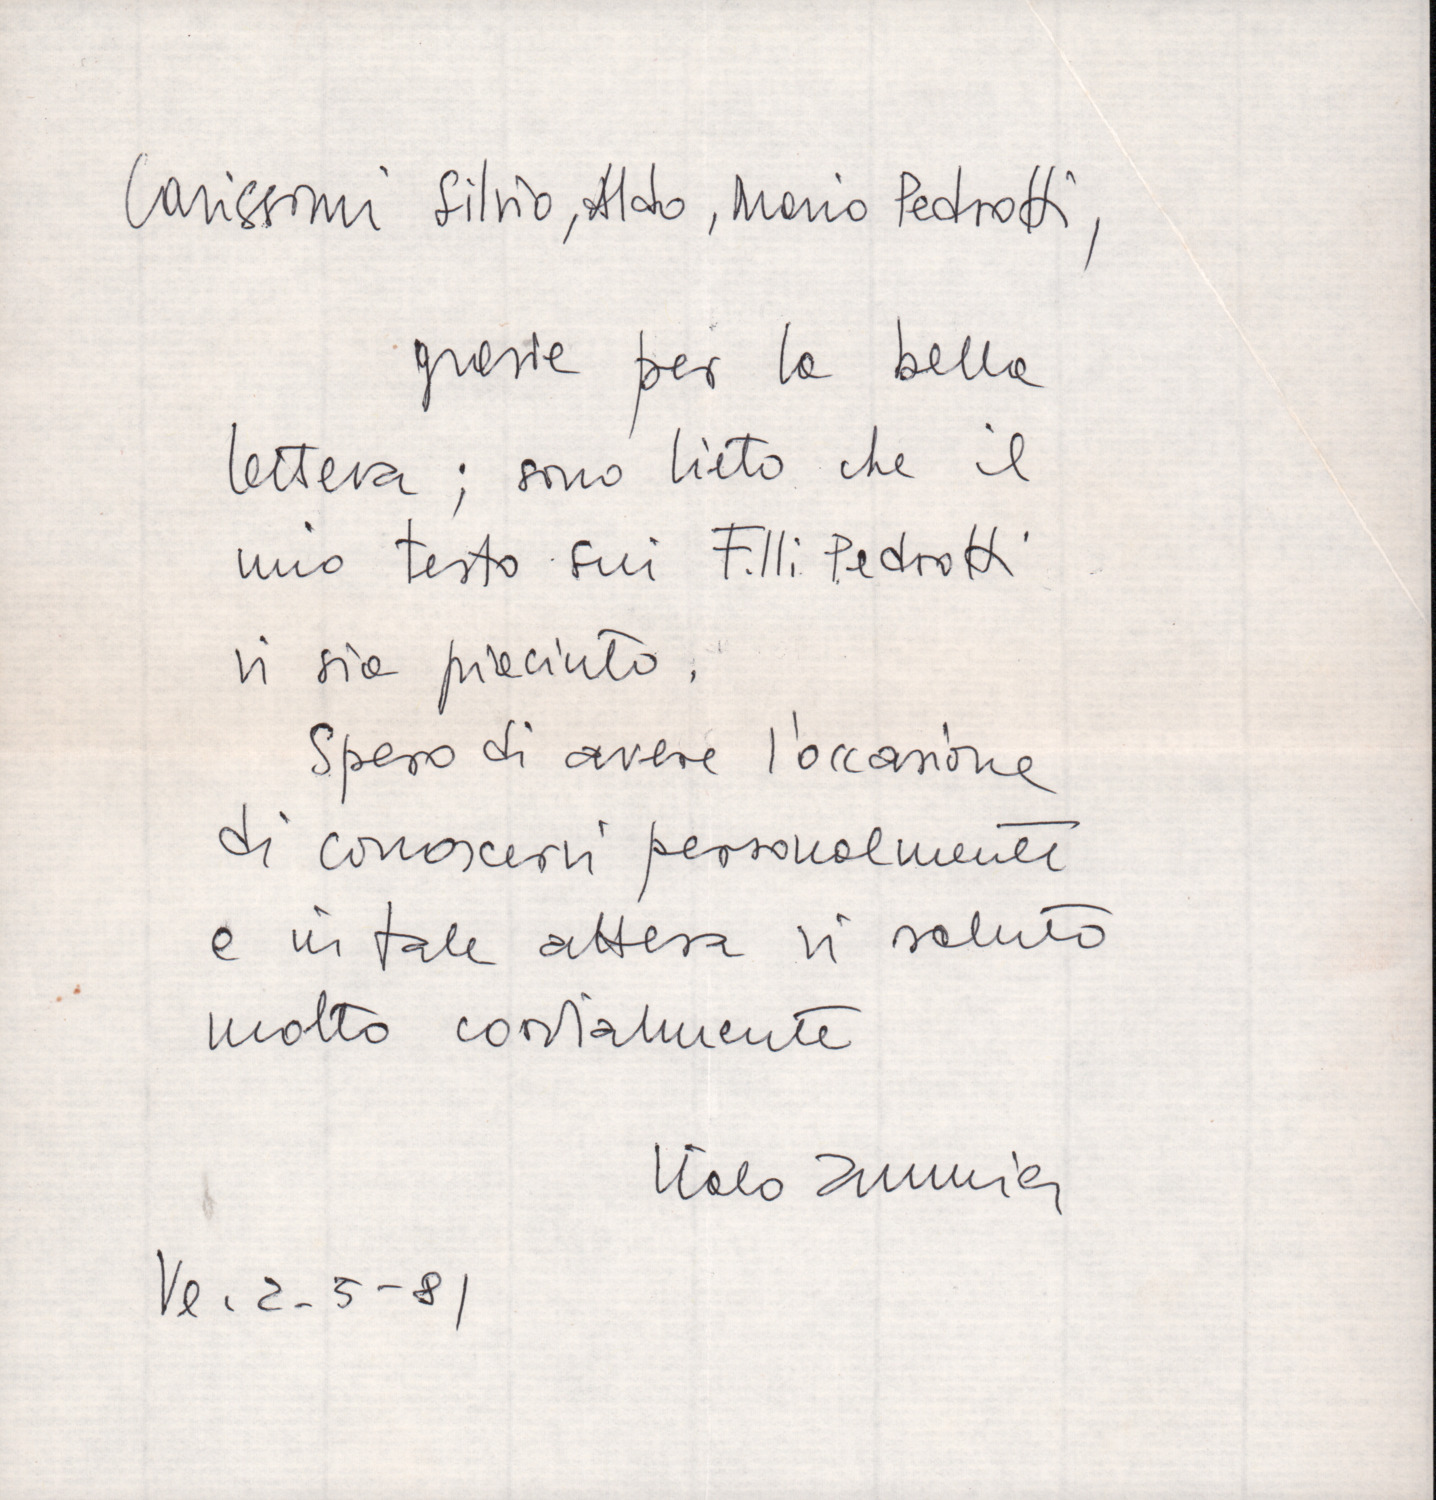 Carissimi Silvio, Aldo, Mario Pedrotti,
grazie per la bella
lettera; sono lieto che il
mio testo sui F.lli Pedrotti
vi sia piaciuto.
Spero di avere l'occasione
di conoscervi personalmente
e in tale attesa vi saluto
molto cordialmente
Italo Zannier
Ve. 2-5-81